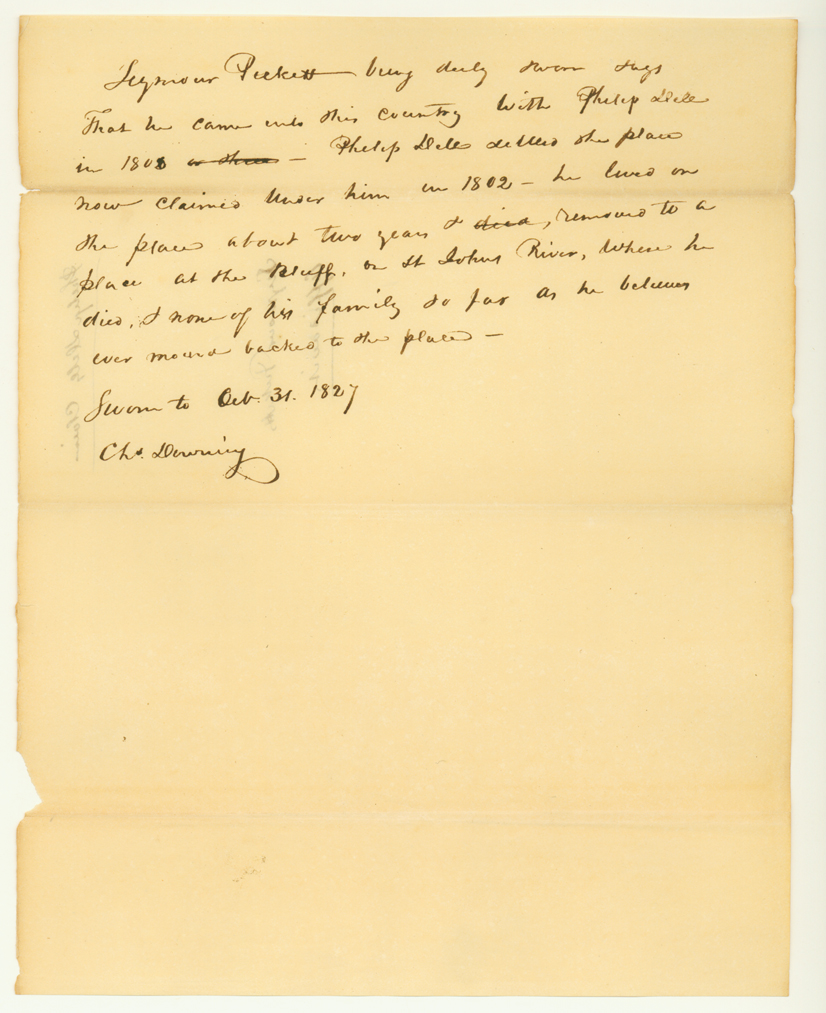 Seymour Pickett being duly sworn says
That he came into this country with Philip Dell
in 1801 or three – Philip Dell settled the place
now claimed under him in 1802 – he lived on
the place about two years & died, removed to a
place at the Bluff, on St Johns River, where he
died, & none of his family so far as he believes
ever moved backed to the place –
Sworn to Oct. 31. 1827
Chs. Downing